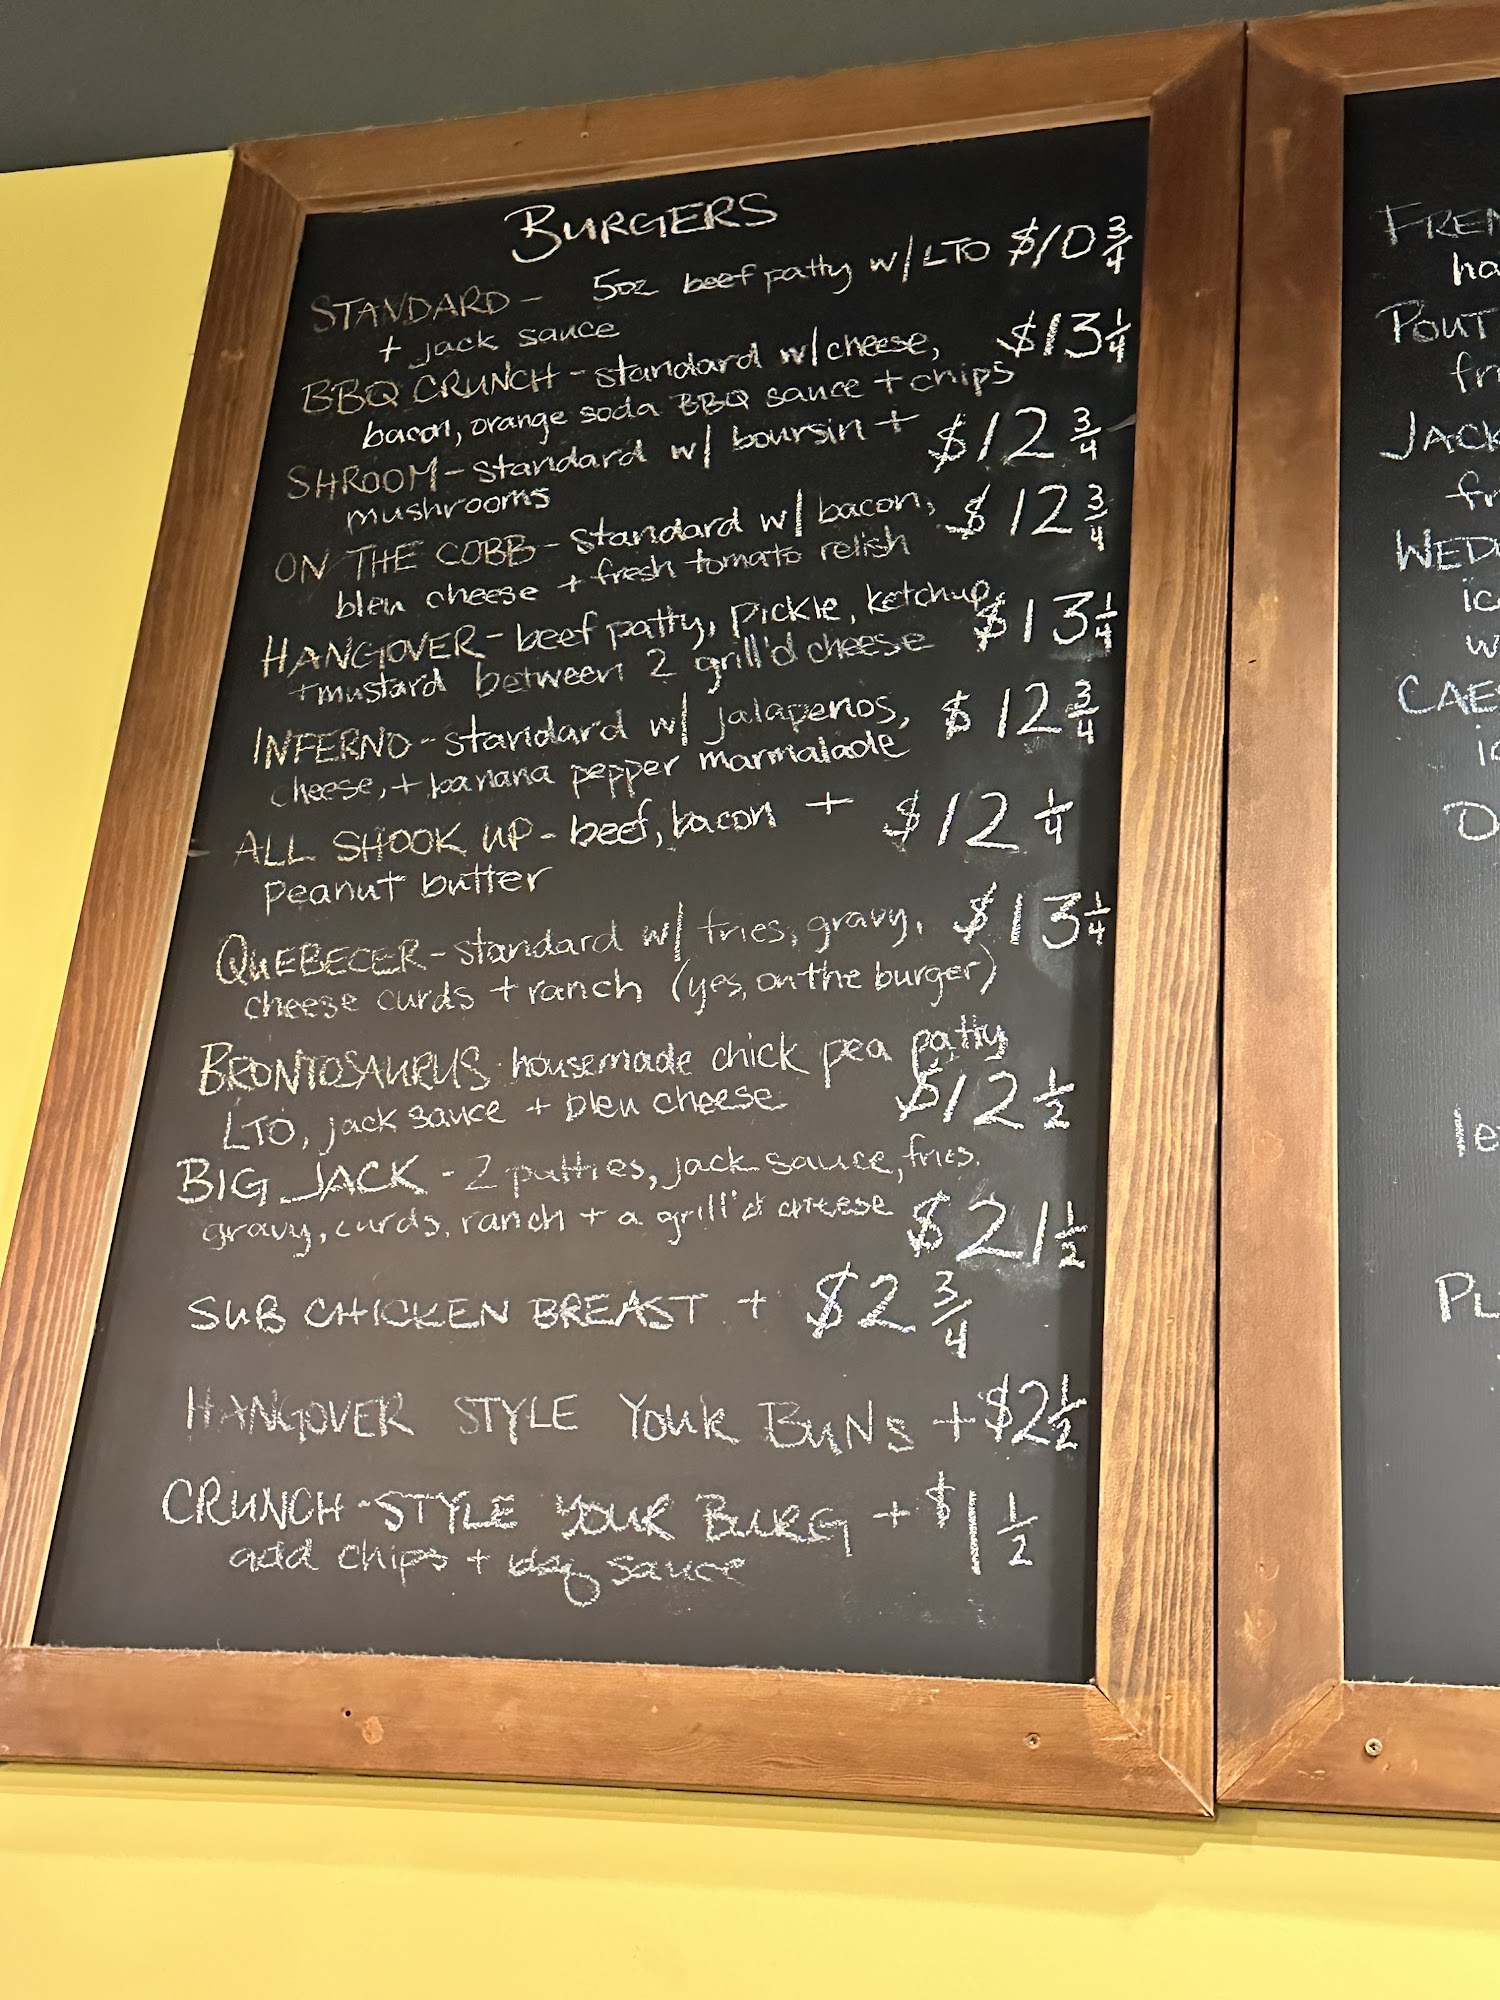 BURGERS
STANDARD - 5oz beef patty w/ LTO $10 3/4
+ jack sauce
BBQ CRUNCH - standard w/ cheese, $13 1/4
bacon, orange soda BBQ sauce + chips
SHROOM - standard w/ boursin + $12 3/4
mushrooms
ON THE COBB - standard w/ bacon, $12 3/4
bleu cheese + fresh tomato relish
HANGOVER - beef patty, pickle, ketchup, $13 1/4
+ mustard between 2 grill'd cheese
INFERNO - standard w/ jalapenos, $12 3/4
cheese, + banana pepper marmalade
ALL SHOOK UP - beef, bacon + $12 1/4
peanut butter
QUEBECER - standard w/ fries, gravy, $13 1/4
cheese curds + ranch (yes, on the burger)
BRONTOSAURUS - housemade chick pea patty
LTO, jack sauce + bleu cheese $12 1/2
BIG JACK - 2 patties, jack sauce, fries,
gravy, curds, ranch + a grill'd cheese $21 1/2
SUB CHICKEN BREAST + $2 3/4
HANGOVER STYLE YOUR BUNS + $2 1/2
CRUNCH-STYLE YOUR BURG + $1 1/2
add chips + bbq sauce
FREN
ha
POUT
fri
JACK
fr
WED
ic
w
CAES
ic
D
le
PL